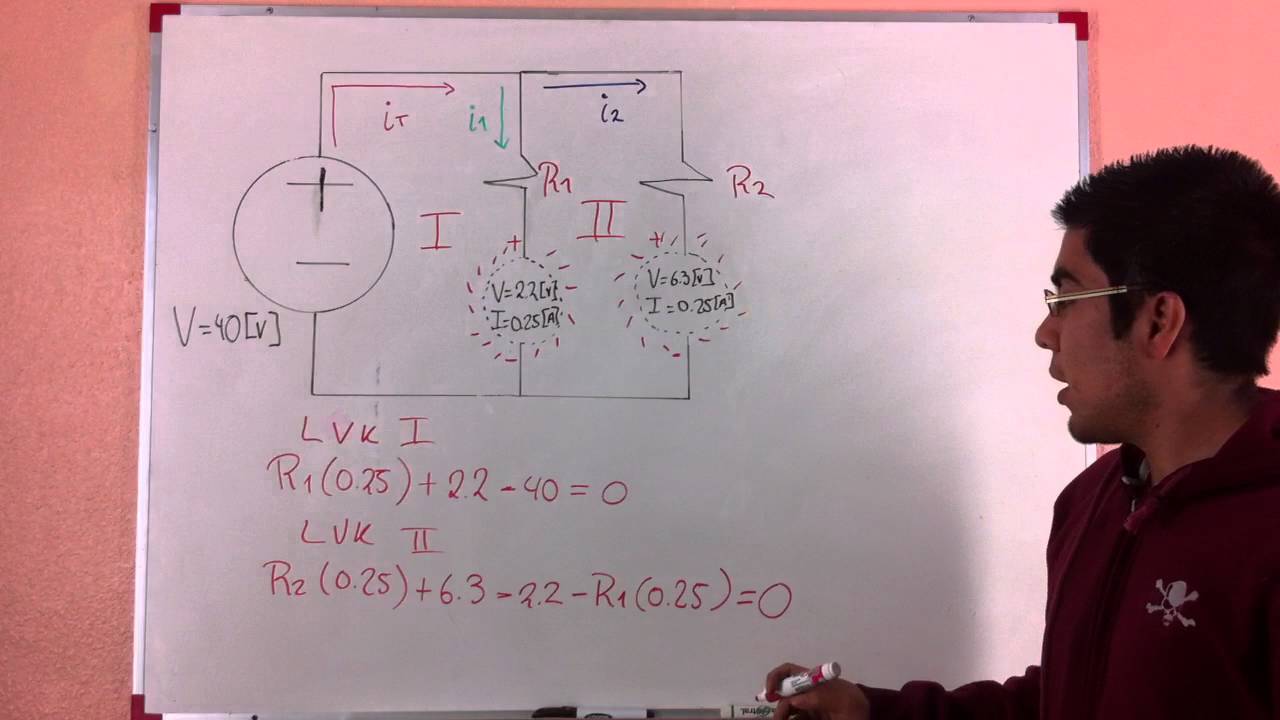 iT
i1
i2
R1
R2
I
II
+
+
V=2.2[V]
I=0.25[A]
V=6.3[V]
I=0.25[A]
V=40[V]
LVK I
R1(0.25)+2.2-40=0
LVK II
R2(0.25)+6.3-2.2-R1(0.25)=0